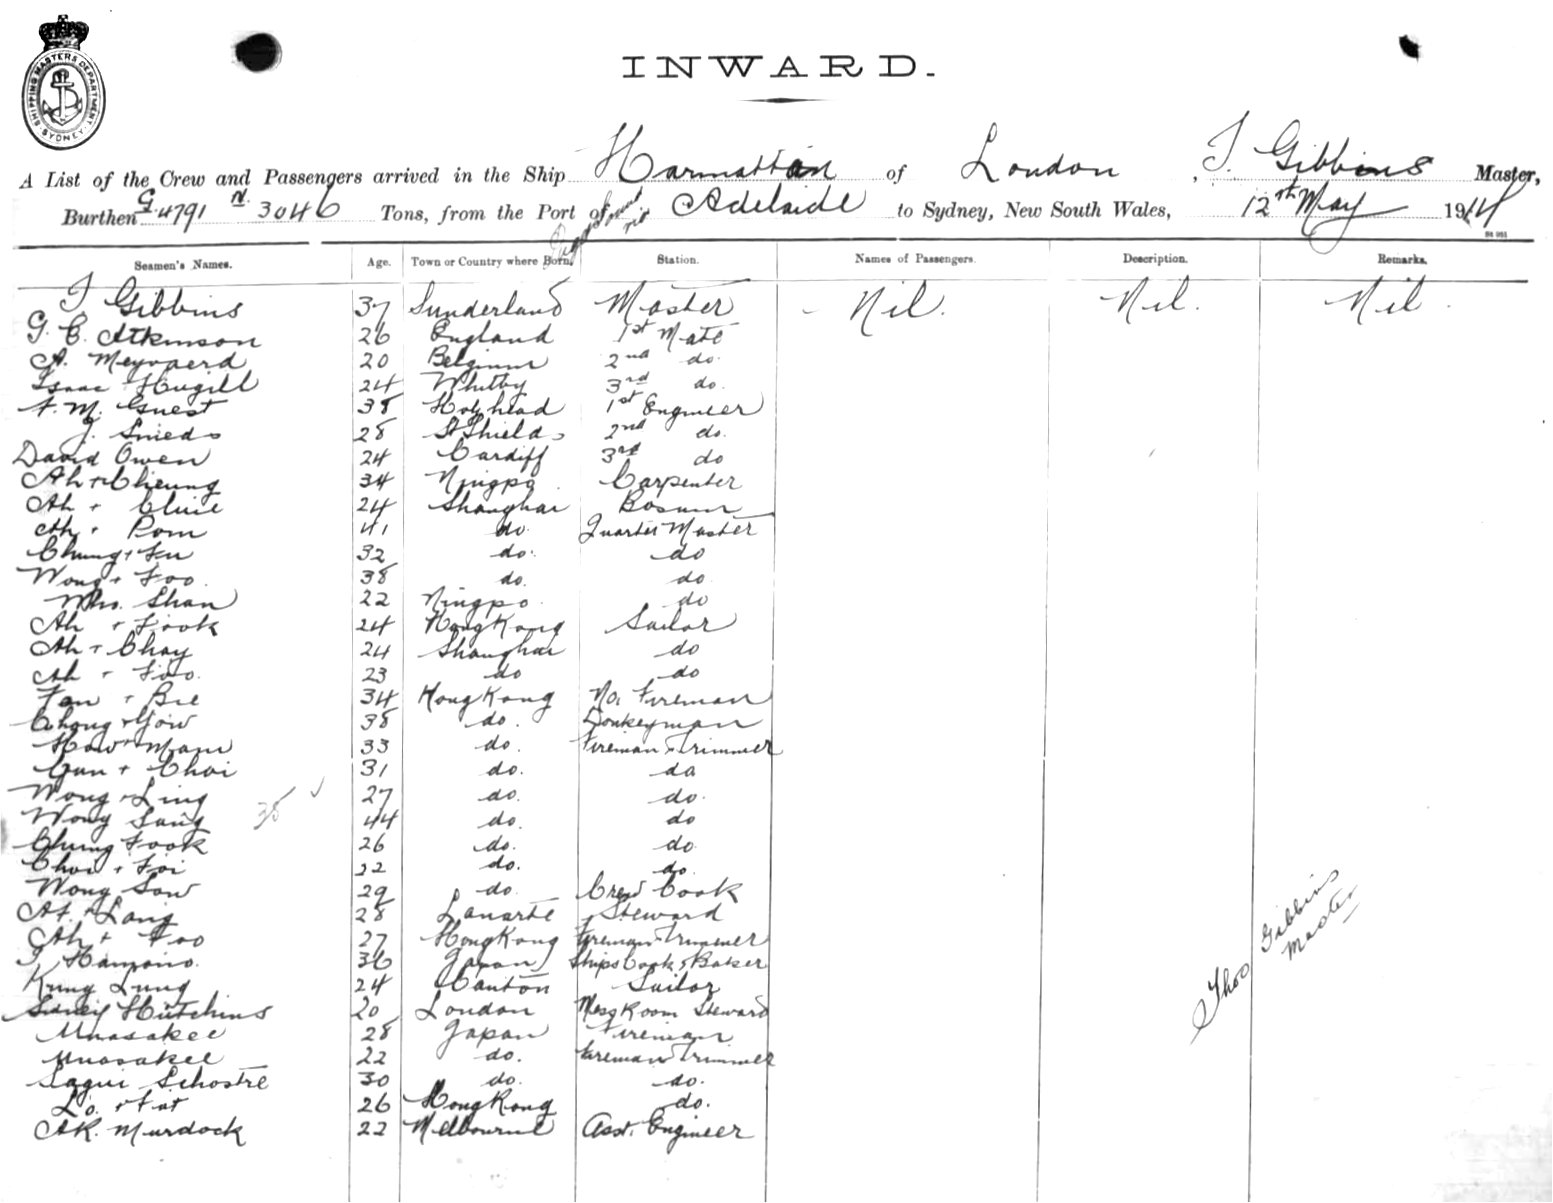 SHIPPING MASTERS DEPARTMENT SYDNEY
INWARD.
A List of the Crew and Passengers arrived in the Ship Harmattan of London, T. Gibbins Master,
Burthen G 4791 N. 3046 Tons, from the Port of Adelaide to Sydney, New South Wales, 12th May 1914
Seamen's Names. Age. Town or Country where Born. Station. Names of Passengers. Description. Remarks.
T Gibbins 37 Sunderland Master Nil. Nil. Nil.
G. C. Atkinson 26 England 1st Mate
A. 20 Belgium 2nd do.
Isaac Hugill 24 Whitby 3rd do.
F. M. Guest 38 Holyhead 1st Engineer
J. 28 St Shields 2nd do.
David Owen 24 Cardiff 3rd do
Ah + Cheung 34 Ningpo Carpenter
Ah + 24 Shanghai Bosun
Ah + Pom 41 do. Quarter Master
Chung + 32 do. do
Wong + Foo. 38 do. do
Shan 22 Ningpo. do
Ah + Fook 24 Hong Kong Sailor
Ah + Chay 24 Shanghai do
Ah + Foo. 23 do do
Fan + Bee 34 Hong Kong No. 1 Fireman
Chong + Yow 38 do. Donkeyman
How + Mam 33 do. Fireman & Trimmer
Gan + Choi 31 do. do
Wong + Ling 35 27 do. do.
Wong Sang 44 do. do
Chung Fook 26 do. do.
Choi + Foi 22 do. do.
Wong Sow 29 do. Crew Cook
+ Lang 28 Steward
Ah + Foo 27 Hong Kong Fireman & Trimmer
36 Japan Ships Cook & Baker
Kung Lung 24 Canton Sailor
Sidney Hutchins 20 London Mess Room Steward
Muasakee 28 Japan Fireman
Muasakee 22 do. Fireman & Trimmer
30 do. do.
Lo. + Fat 26 Hong Kong do.
A.K. Murdock 22 Melbourne Asst. Engineer
Thos Gibbins
Master